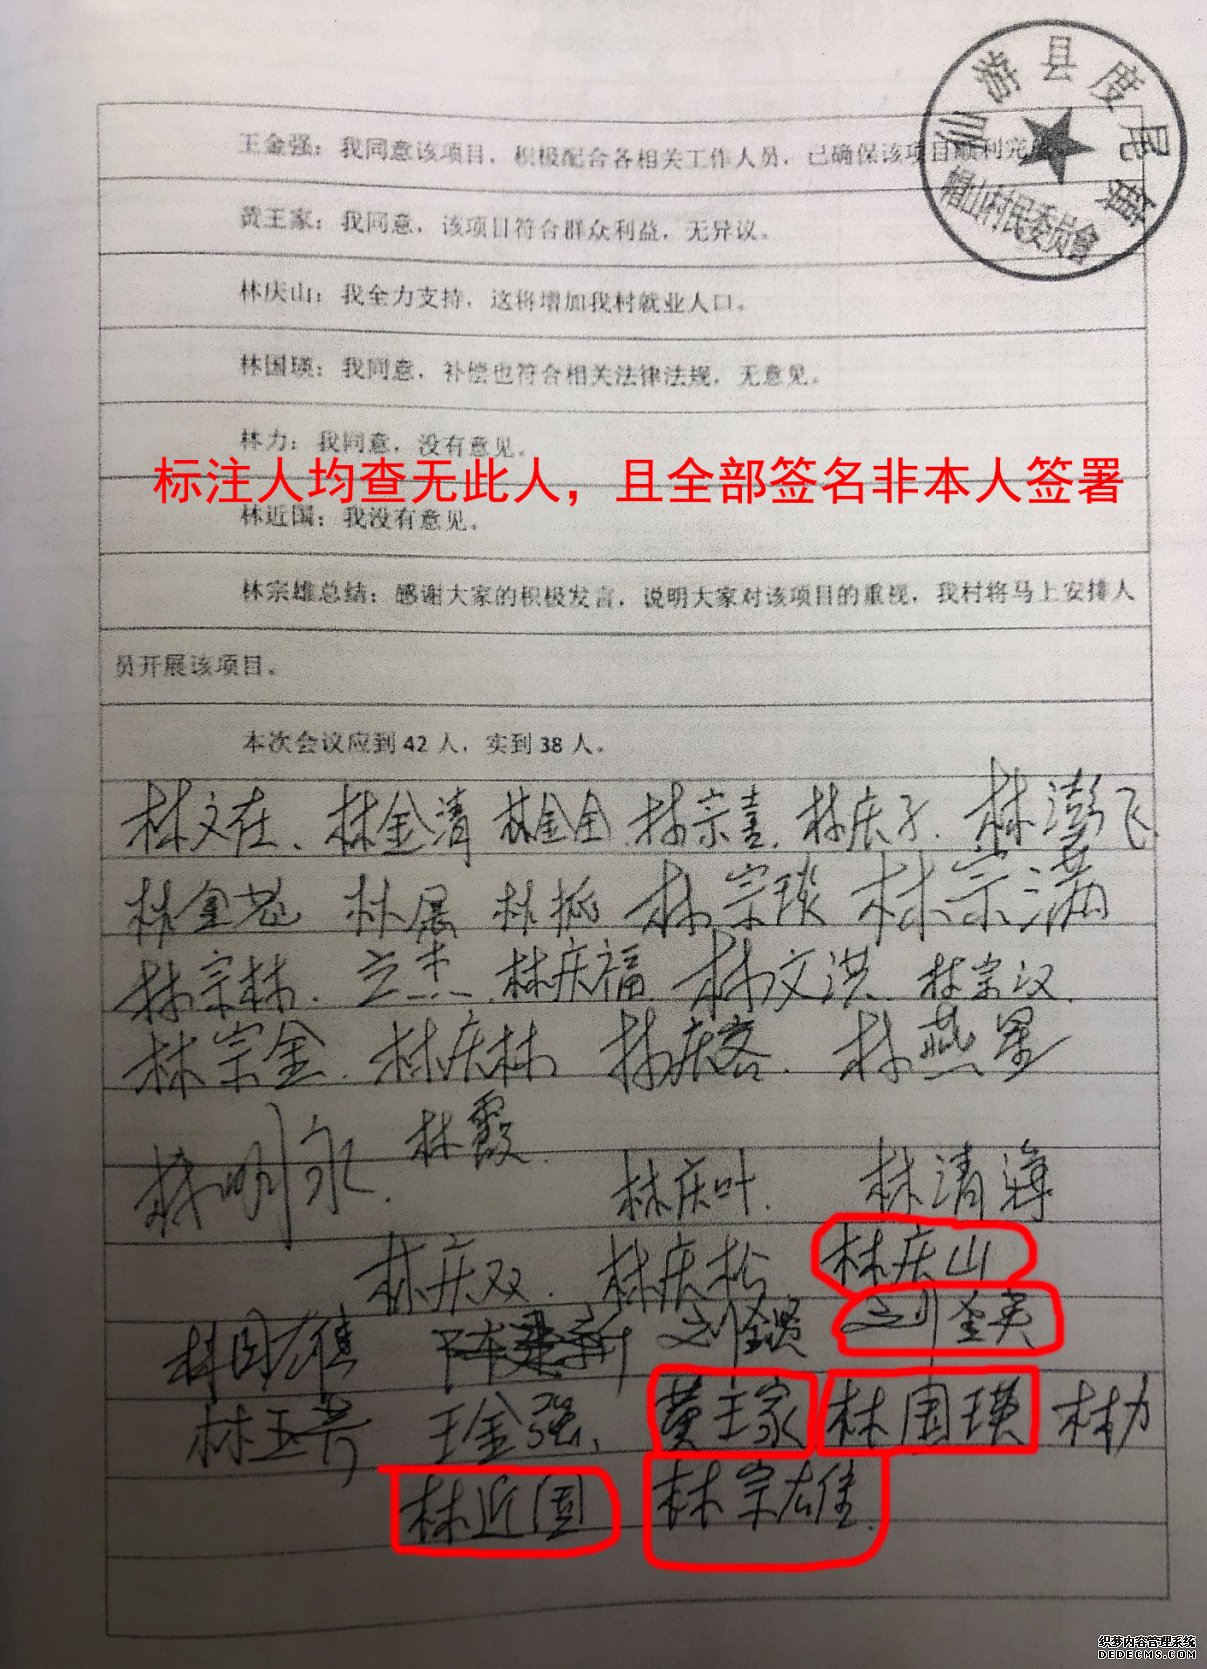 仙游县度尾镇
帽山村民委员会
王金强：我同意该项目，积极配合各相关工作人员，已确保该项目顺利完
黄王家：我同意，该项目符合群众利益，无异议。
林庆山：我全力支持，这将增加我村就业人口。
林国瑛：我同意，补偿也符合相关法律法规，无意见。
林力：我同意，没有意见。
标注人均查无此人，且全部签名非本人签署
林近国：我没有意见。
林宗雄总结：感谢大家的积极发言，说明大家对该项目的重视，我村将马上安排人
员开展该项目。
本次会议应到 42 人，实到 38 人。
林文在 林金清 林金全 林宗喜 林庆子 林澎飞
林展 林宗琰 林宗满
林宗林 林庆福 林文洪 林宗汉
林宗金 林庆林 林庆客 林燕星
林明永 林霞
林庆叶 林清海
林庆双 林庆松 林庆山
林国雄
王金强 黄王家 林国瑛 林力
林近国 林宗雄
织梦内容管理系统
DEDECMS.COM